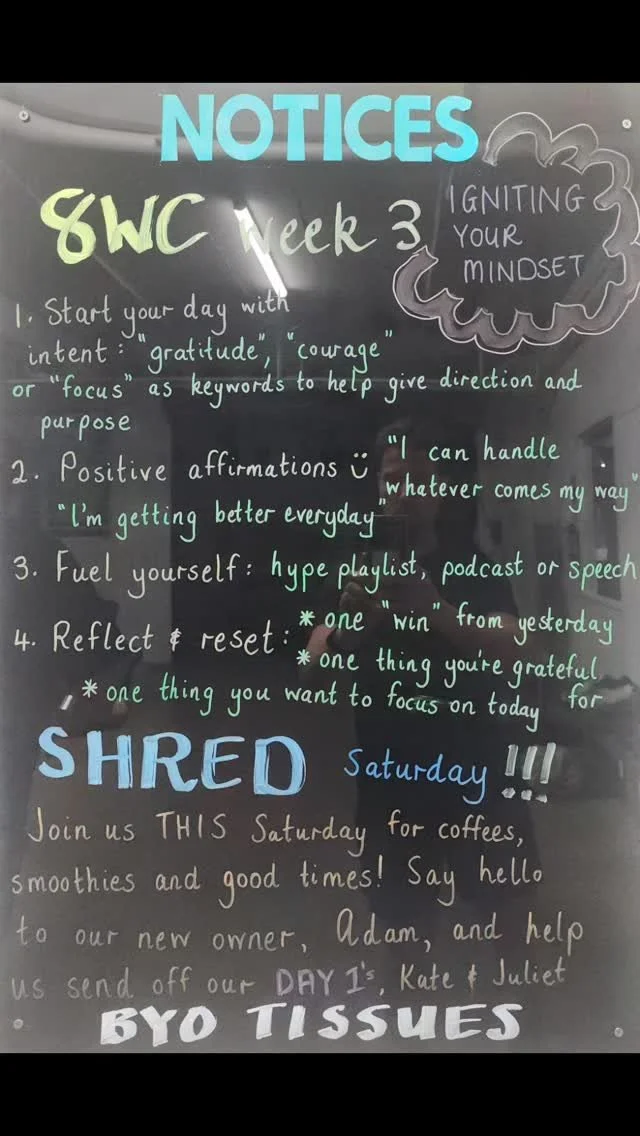 NOTICES
8WC week 3
IGNITING
YOUR
MINDSET
1. Start your day with
intent: "gratitude", "courage"
or "focus" as keywords to help give direction and
purpose
2. Positive affirmations "I can handle
whatever comes my way"
"I'm getting better everyday"
3. Fuel yourself: hype playlist, podcast or speech
4. Reflect & reset: * one "win" from yesterday
* one thing you're grateful
for
* one thing you want to focus on today
SHRED Saturday !!!
Join us THIS Saturday for coffees,
smoothies and good times! Say hello
to our new owner, Adam, and help
us send off our DAY 1's, Kate & Juliet
BYO TISSUES